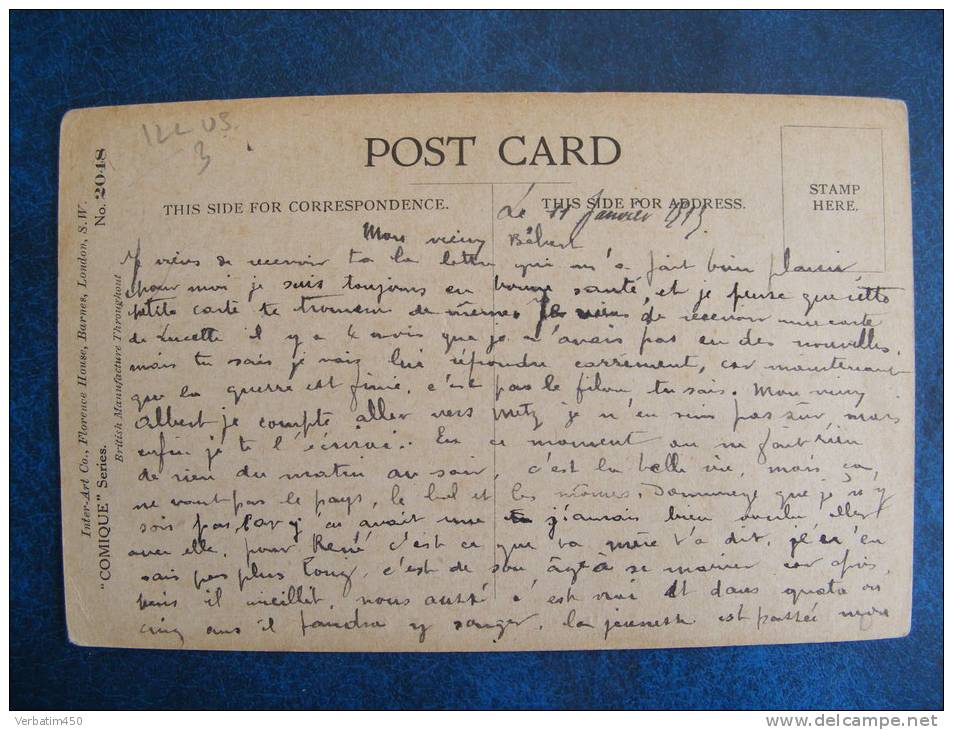 ILLUS
3
POST CARD
THIS SIDE FOR CORRESPONDENCE.
THIS SIDE FOR ADDRESS.
STAMP
HERE.
Inter-Art Co., Florence House, Barnes, London, S.W.
British Manufacture Throughout
"COMIQUE" Series.
No. 2048
Le 11 Janvier
Mon vieux Bébert
Je viens de recevoir ta la lettre qui m'a fait bien plaisir,
pour moi je suis toujours en bonne santé, et je pense que cette
petite carte te trouvera de même. Je viens de recevoir une carte
de Lucette il y a 4 mois que je n'avais pas eu des nouvelles,
mais tu sais je vais lui répondre carrément, car maintenant
que la guerre est finie, c'est pas le filon, tu sais. Mon vieux
Albert je compte aller vers Metz je n'en suis pas sûr, mais
enfin je te l'écrirai. En ce moment on ne fait rien
de rien du matin au soir, c'est la belle vie, mais ça,
ne vaut pas le pays, le bal et les mômes. Dommage que je n'y
sois pas, car y en avait une j'aurais bien voulu aller
avec elle, pour René c'est ce que ta mère t'a dit, je n'en
sais pas plus long, c'est de son âge à se marier car après,
puis il vieillit, nous aussi c'est vrai et dans quatre ou
cinq ans il faudra y songer, la jeunesse est passée
Verbatim450
www.delcampe.net